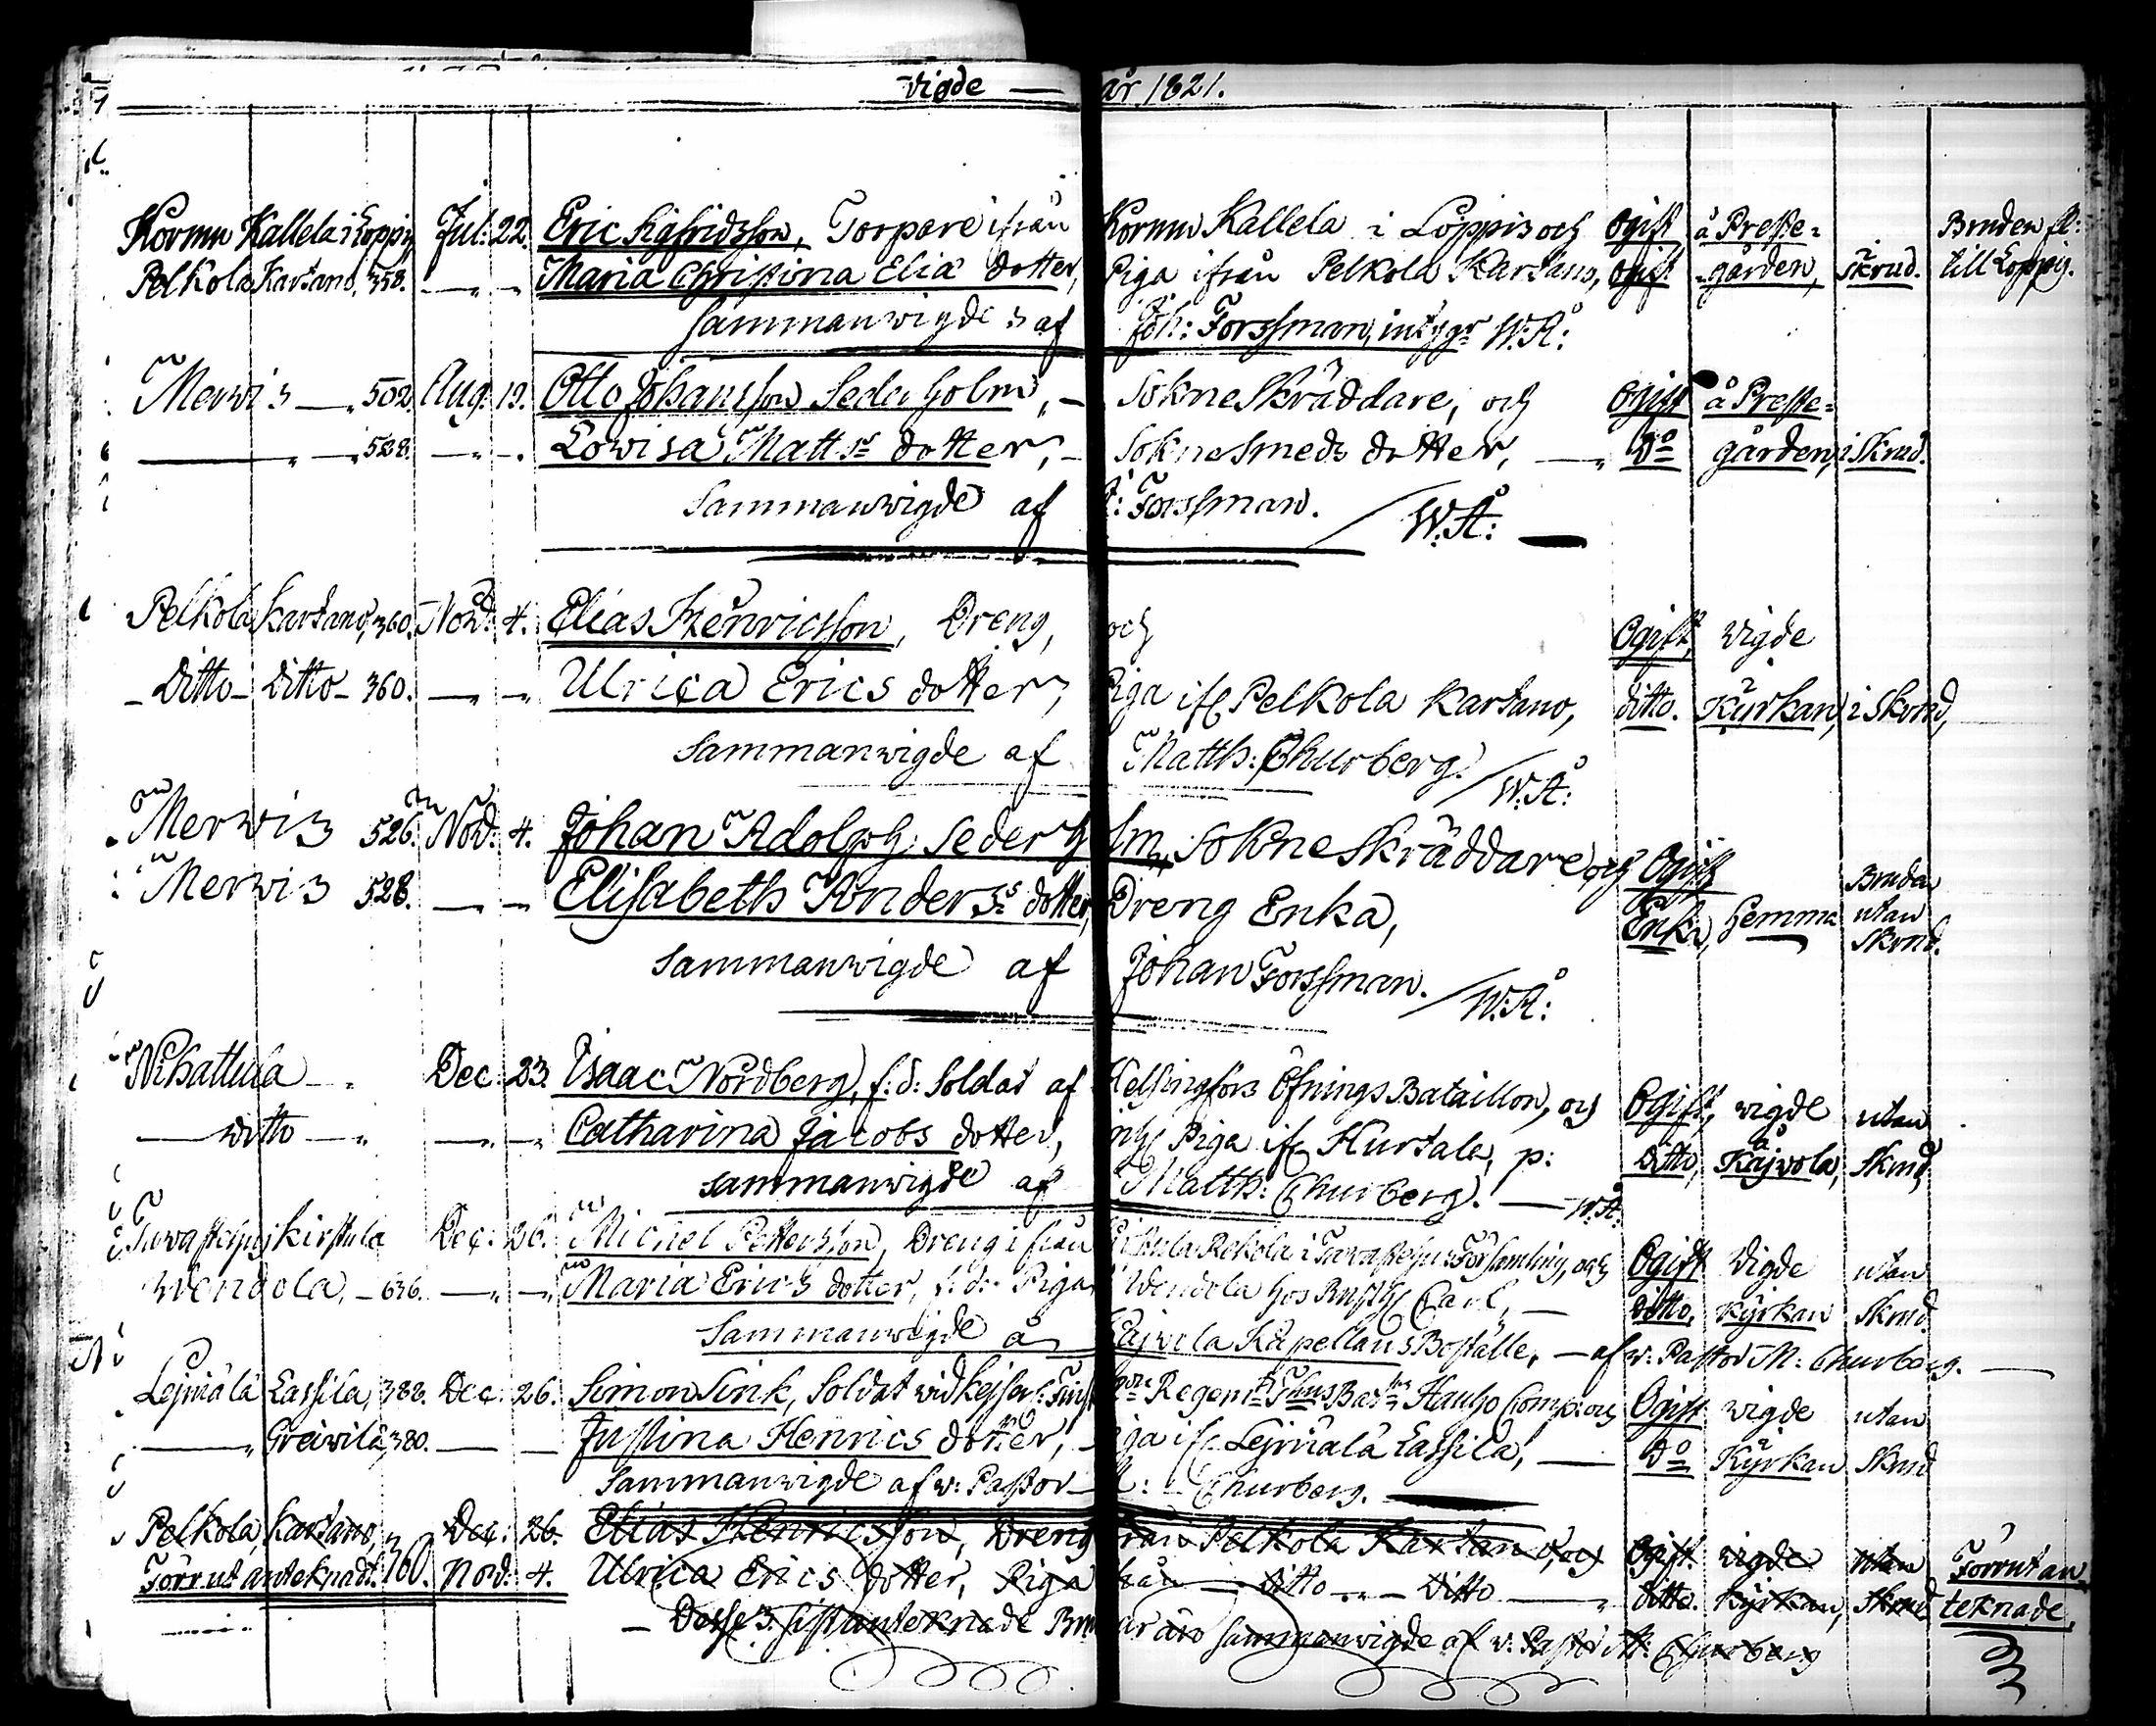 vigde — år 1821.
Kormu Kallela i Loppis, Jul: 22. Eric Sigfridsson, Torpare ifrån Kormu Kallela i Loppis och Ogift å Preste- Bruden fl:
Pelkola Kartano, 358. —„— Maria Christina Eliæ dotter, Piga ifrån Pelkola Kartano, ogift -gården, i Skrud. till Loppis.
sammanvigde af Joh: Forssman, intygr W.Å:
Merwis — 502. Aug: 19. Otto Johansson Sederholm, — Sokne Skräddare, och Ogift å Preste-
—„— 528. —„— Lowisa Matts dotter, — Sokne Smeds dotter, — Do gården, i Skrud.
Sammanwigde af J: Forssman. / W.Å: —
Pelkola Kartano, 360. Nov: 4. Elias Henricsson, Dreng, och Ogift, vigde
- Ditto - Ditto - 360. —„— Ulrica Erics dotter, Piga ifr Pelkola Kartano, ditto. i Kyrkan, i Skrud,
sammanwigde af Matth: Churberg. / W.Å:
Merwis 526. Nov: 4. Johan Adolph Sederholm, Sokne Skräddare, och Ogift Bruden
Merwis 528. —„— Elisabeth Anders dotter, Dreng Enka, Enka, hemma utan Skrud.
sammanwigde af Johan Forssman. / W.Å:
Nihattula —„ Dec: 23. Isaac Nordberg, f: d: Soldat af Helsingfors Öfnings Bataillon, och Ogift, vigde utan
— ditto —„ —„— Catharina Jacobs dotter, Piga ifr Hurtala, p: Ditto, å Kajvola, Skrud,
sammanwigde af Matth: Churberg. — W.Å:
Tavastehus Kirstula Dec: 26. Michel Pettersson, Dreng ifrån Rekola i Tavastehus Församling, och Ogift Vigde utan
Wendola, — 636. —„— Maria Erics dotter, f: d: Piga i Wendola hos Carl, — ditto, kyrkan Skrud.
Sammanwigde å Kajvola Kapellans Boställe, — af v: Pastor M: Churberg. —
Lejniälä Lassila, 388. Dec: 26. Simon Sink, Soldat wid Kejserl: Regem: Hauho Comp: och Ogift vigde utan
—„ Greivilä, 380. — — Justina Henrics dotter, Piga ifr Lejniälä Lassila, — Do i Kyrkan Skrud
Sammanwigde af v: Pastor M: Churberg. —
Pelkola, Kartano, Dec: 26. Elias Henricsson, Dreng från Pelkola Kartano, och Ogift vigde utan Förrut an-
Förrut anteknadt. 360. Nov: 4. Ulrica Erics dotter, Piga från — Ditto — Ditto — ditto. Kyrkan, Skrud, teknade.
— Desse 3 sist anteknade Brudpar äro sammanwigde af v: Pastor M: Churberg